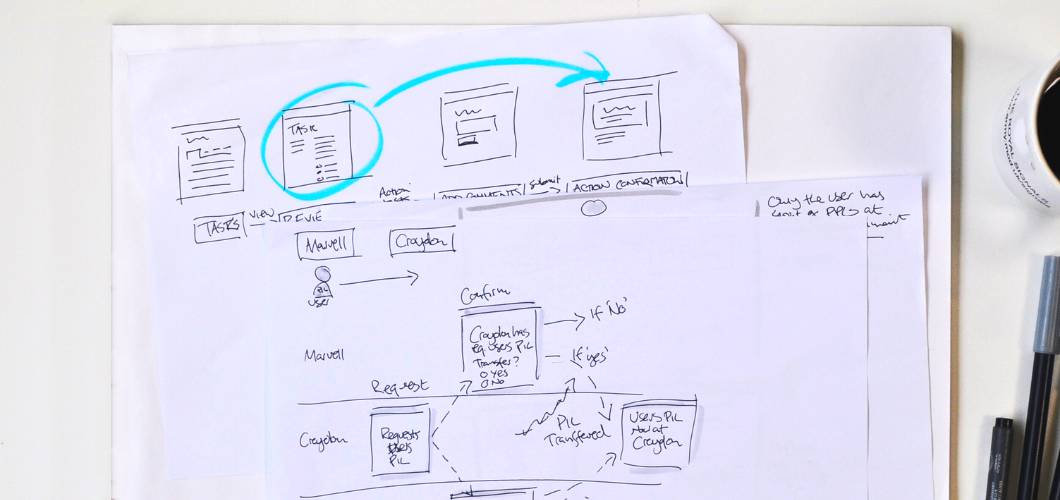 TASK
Action
submit
ACTION CONFIRMATION
Only the user has
at
TASKS
VIEW
Marvell
Croydon
PIL
user
Confirm
Croydon has
req users PIL
Transfer?
O Yes
O No
If 'No'
If 'yes'
Marvell
Request
Croydon
Requests
users
PIL
PIL
Transferred
Users PIL
now at
Croydon